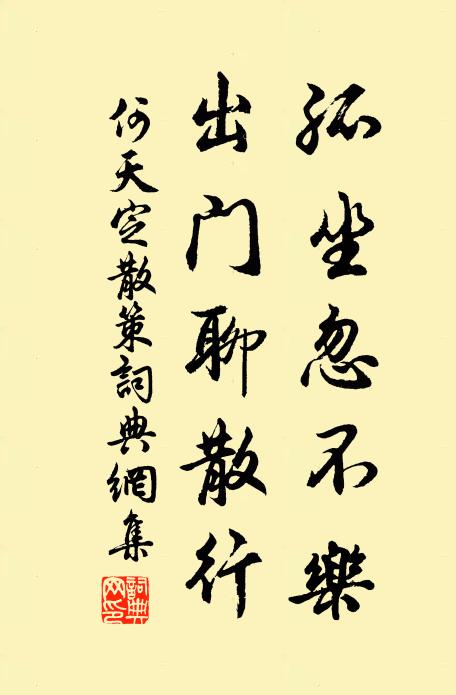 孤坐忽不樂
出门聊散行
何天定散策詞典網集
詞典网印